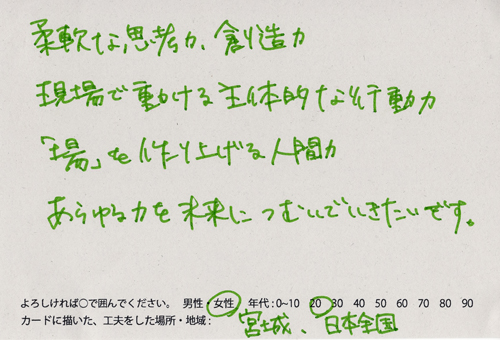 柔軟な思考力、創造力
現場で動ける主体的な行動力
「場」を作り上げる人間力
あらゆる力を未来につむいでいきたいです。
よろしければ○で囲んでください。 男性・女性 年代:0~10 20 30 40 50 60 70 80 90
カードに描いた、工夫をした場所・地域: 宮城、日本全国